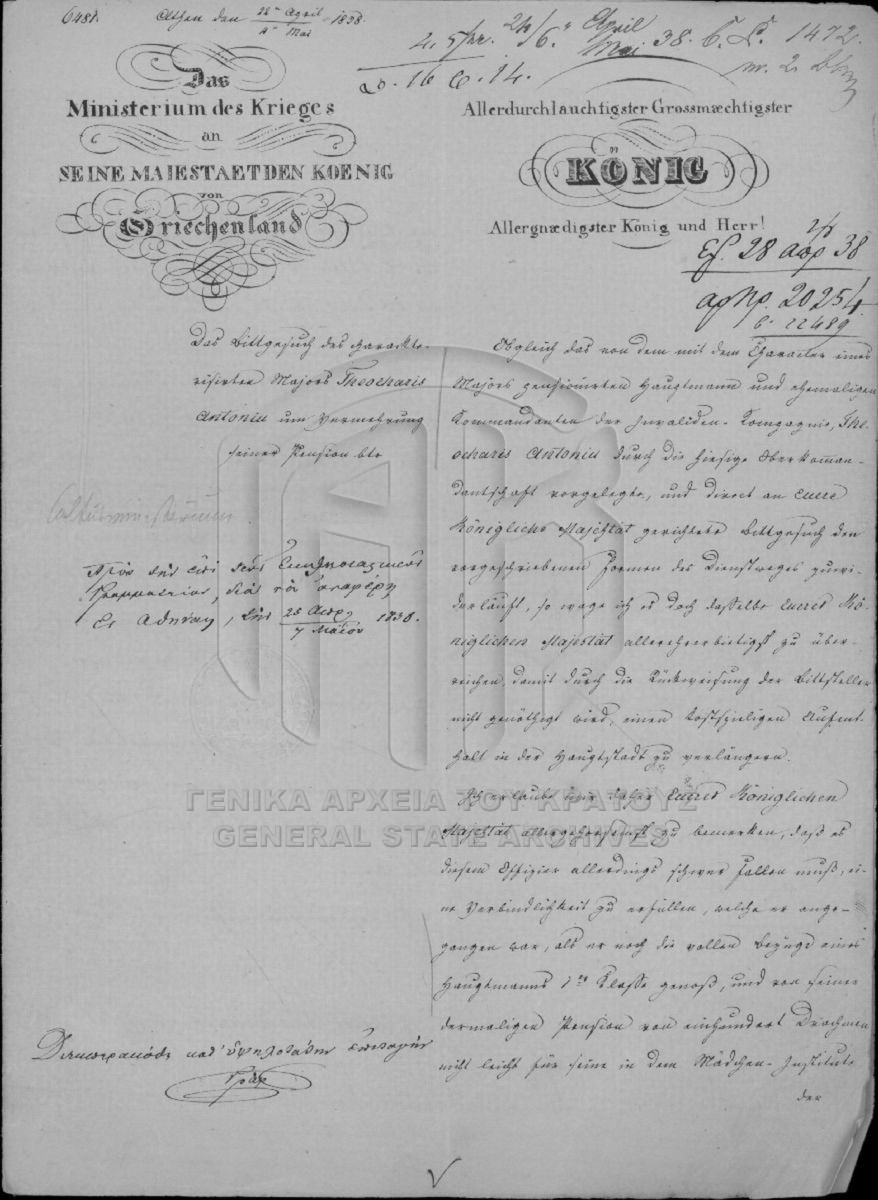 6481. Athen den 22ten April / 4ten Mai 1838.
24/6. April / Mai 38. 1472.
Das
Ministerium des Krieges
an
SEINE MAIESTAET DEN KOENIG
von
Griechenland
Allerdurchlauchtigster Grossmæchtigster
KÖNIG
Allergnædigster König und Herr!
28 απρ 38
αρ πρ. 20254
22489
Das Bittgesuch des charakte-
risirten Majors Theocharis
Antoniu um Vermehrung
seiner Pension btr
Cultusministerium
Πρὸς τὴν ἐπὶ τῶν Ἐκκλησιαστικῶν
Γραμματείαν, διὰ νὰ ἀναφέρῃ
Ἐν Ἀθήναις, τὴν 25 Ἀπρ / 7 Μαΐου 1838.
Obgleich das von dem mit dem Character eines
Majors pensionirten Hauptmann und ehemaligen
Kommandanten der Invaliden-Kompagnie, The-
ocharis Antoniu durch die hiesige Oberkomman-
dantschaft vorgelegte, und direct an Euere
Königliche Majestät gerichtete Bittgesuch den
vorgeschriebenen Formen des Dienstweges zuwi-
derläuft, so wage ich es doch dasselbe Euerer Kö-
niglichen Majestät allerehrerbietigst zu über-
reichen, damit durch die Rückweisung der Bittsteller
nicht genöthigt wird, einen kostspieligen Aufent-
halt in der Hauptstadt zu verlängern.
Ich erlaube mir daher Euerer Königlichen
Majestät allergehorsamst zu bemerken, daß es
diesem Offizier allerdings schwer fallen muß, ei-
ne Verbindlichkeit zu erfüllen, welche er einge-
gangen war, als er noch die vollen Bezüge eines
Hauptmanns 1ter Klasse genoß, und von seiner
dermaligen Pension von einhundert Drachmen
nicht leicht für seine in dem Mädchen-Institute
der
καθ' ὑψηλοτάτην ἐπιταγήν
ΓΕΝΙΚΑ ΑΡΧΕΙΑ ΤΟΥ ΚΡΑΤΟΥΣ
GENERAL STATE ARCHIVES